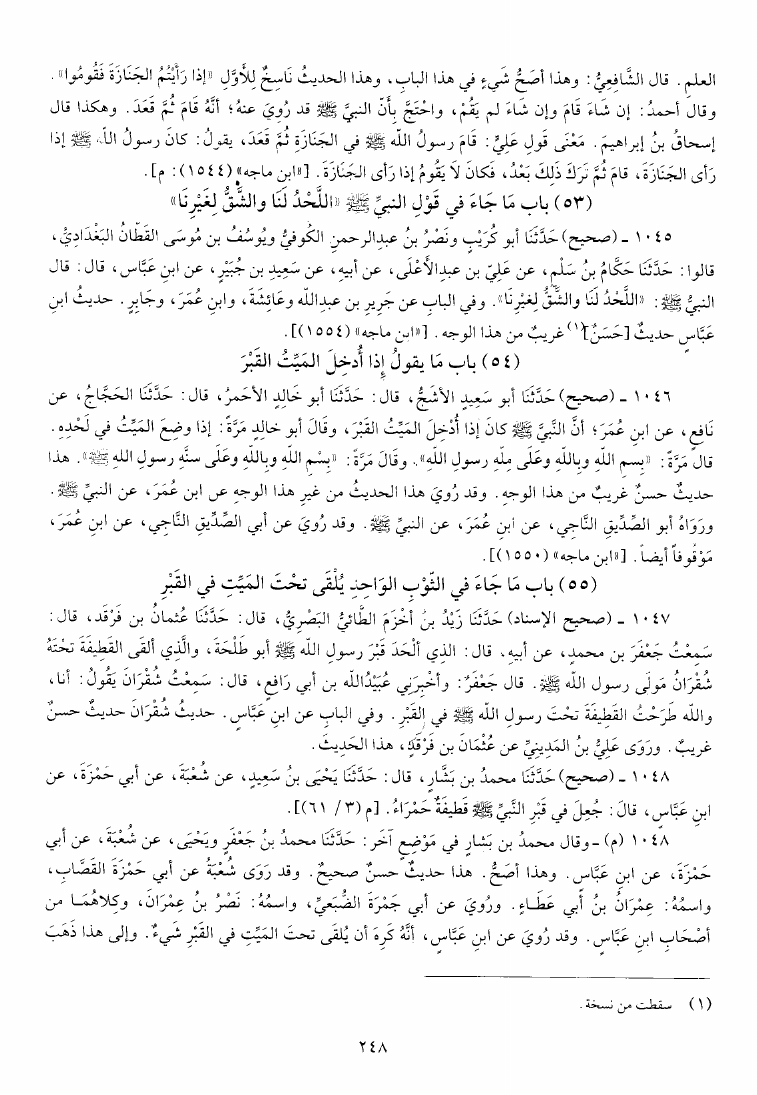 العلمِ. قال الشَّافعيُّ: وهذا أصَحُّ شَيءٍ في هذا البابِ، وهذا الحديثُ نَاسِخٌ لِلأوَّلِ «إذا رَأَيْتُمُ الجَنَازَةَ فَقُومُوا».
وقال أحمدُ: إن شَاءَ قَامَ وإن شَاءَ لم يَقُمْ، واحْتَجَّ بِأنّ النبيَّ ﷺ قد رُوِيَ عنهُ؛ أنَّهُ قَامَ ثُمَّ قَعَدَ. وهكذا قال
إسحاقُ بنُ إبراهيمَ. مَعْنَى قَولِ عَليٍّ: قَامَ رسولُ الله ﷺ في الجَنَازَةِ ثُمَّ قَعَدَ، يقولُ: كانَ رسولُ اللهِ ﷺ إذا
رَأى الجَنَازَةَ، قامَ ثُمَّ تَرَكَ ذَلِكَ بَعْدُ، فَكانَ لاَ يَقُومُ إذا رَأى الجَنَازَةَ. [«ابن ماجه» (١٥٤٤): م].
(٥٣) باب مَا جَاءَ في قَوْلِ النبيِّ ﷺ «اللَّحْدُ لَنَا والشَّقُّ لِغَيْرِنَا»
١٠٤٥ ـ (صحيح) حَدَّثَنَا أبو كُرَيْبٍ ونَصْرُ بنُ عبدِالرحمنِ الكُوفيُّ ويُوسُفُ بن مُوسَى القَطَّانُ البَغْدَاديُّ،
قالوا: حَدَّثَنَا حَكَّامُ بنُ سَلْمٍ، عن عَليِّ بن عبدِالأَعْلَى، عن أبيهِ، عن سَعِيدِ بن جُبَيْرٍ، عن ابنِ عَبَّاسٍ، قال: قال
النبيُّ ﷺ: «اللَّحْدُ لَنَا والشَّقُّ لِغَيْرِنَا». وفي البابِ عن جَرِيرِ بن عبدِالله وعَائِشَةَ، وابنِ عُمَرَ، وجَابِرٍ. حديثُ ابنِ
عَبَّاسٍ حديثٌ [حَسَنٌ](١) غريبٌ من هذا الوجه. [«ابن ماجه» (١٥٥٤)].
(٥٤) باب مَا يقولُ إذا أُدخِلَ المَيِّتُ القَبْرَ
١٠٤٦ ـ (صحيح) حَدَّثَنَا أبو سَعِيدٍ الأشَجُّ، قال: حَدَّثَنَا أبو خَالِدٍ الأحمَرُ، قال: حَدَّثَنَا الحَجَّاجُ، عن
نَافِعٍ، عن ابنِ عُمَرَ؛ أنَّ النَّبيَّ ﷺ كانَ إذا أُدْخِلَ المَيِّتُ القَبْرَ، وقالَ أبو خالِدٍ مَرَّةً: إذا وضِعَ المَيِّتُ في لَحْدِهِ.
قال مَرَّةً: «بِسمِ اللّهِ وبِاللّهِ وعَلَى مِلّةِ رسولِ اللّهِ». وقالَ مَرَّةً: «بِسْمِ اللّهِ وبِاللّهِ وعَلَى سنّه رسولِ اللهِ ﷺ». هذا
حديثٌ حسنٌ غريبٌ من هذا الوجهِ. وقد رُوِيَ هذا الحديثُ من غيرِ هذا الوجهِ عن ابن عُمَرَ، عن النبيِّ ﷺ.
ورَوَاهُ أبو الصِّدِّيقِ النَّاجِي، عن ابنِ عُمَرَ، عن النبيِّ ﷺ. وقد رُوِيَ عن أبي الصِّدِّيقِ النَّاجِي، عن ابنِ عُمَرَ،
مَوْقُوفاً أيضاً. [«ابن ماجه» (١٥٥٠)].
(٥٥) باب مَا جَاءَ في الثّوْبِ الوَاحِدِ يُلْقَى تحْتَ المَيِّتِ في القَبْرِ
١٠٤٧ ـ (صحيح الإسناد) حَدَّثَنَا زَيْدُ بنُ أخْزَمَ الطّائيُّ البَصْرِيُّ، قال: حَدَّثَنَا عُثمانُ بن فَرْقَد، قال:
سَمِعْتُ جَعْفَرَ بن محمدٍ، عن أبيهِ، قال: الذي ألْحَدَ قَبْرَ رسولِ الله ﷺ أبو طَلْحَةَ، والَّذِي ألقى القَطِيفَةَ تحْتَهُ
شُقْرَانُ مَولَى رسول الله ﷺ. قال جَعْفَرٌ: وأخْبَرَنِي عُبَيْدُالله بن أبي رَافعٍ، قال: سَمعْتُ شُقْرَانَ يَقُولُ: أنا،
والله طَرَحْتُ القَطِيفَةَ تحْتَ رسولِ الله ﷺ في القَبْرِ. وفي البابِ عن ابنِ عَبَّاسٍ. حديثُ شُقْرَانَ حديثٌ حسنٌ
غريبٌ. ورَوَى عَليُّ بنُ المَدِينِيِّ عن عُثْمَانَ بن فَرْقَدٍ، هذا الحَدِيثَ.
١٠٤٨ ـ (صحيح) حَدَّثَنَا محمدُ بن بَشَّارٍ، قال: حَدَّثَنَا يَحْيَى بنُ سَعِيدٍ، عن شُعْبَةَ، عن أبي حَمْزَةَ، عن
ابنِ عَبَّاسٍ، قالَ: جُعِلَ في قَبْرِ النَّبيِّ ﷺ قَطيفَةٌ حَمْرَاءُ. [م (٣/ ٦١)].
١٠٤٨ (م) ـ وقال محمدُ بن بَشارٍ في مَوْضِعٍ آخَر: حَدَّثَنَا محمدُ بنُ جَعْفَرٍ ويَحْيَى، عن شُعْبَةَ، عن أبي
حَمْزَةَ، عن ابنِ عَبَّاسٍ. وهذا أصَحُّ. هذا حديثٌ حسنٌ صحيحٌ. وقد رَوَى شُعْبَةُ عن أبي حَمْزَةَ القَصَّابِ،
واسمُهُ: عِمْرَانُ بنُ أبي عَطَاءٍ. ورُويَ عن أبي جَمْرَةَ الضُّبَعيِّ، واسمُهُ: نَصْرُ بنُ عِمْرَانَ، وكِلاهُمَا من
أصْحَابِ ابنِ عَبَّاسٍ. وقد رُوِيَ عن ابنِ عَبَّاسٍ، أنَّهُ كَرِهَ أن يُلقَى تحتَ المَيِّتِ في القَبْرِ شَيءٌ. وإلى هذا ذَهَبَ
(١) سقطت من نسخة.
٢٤٨